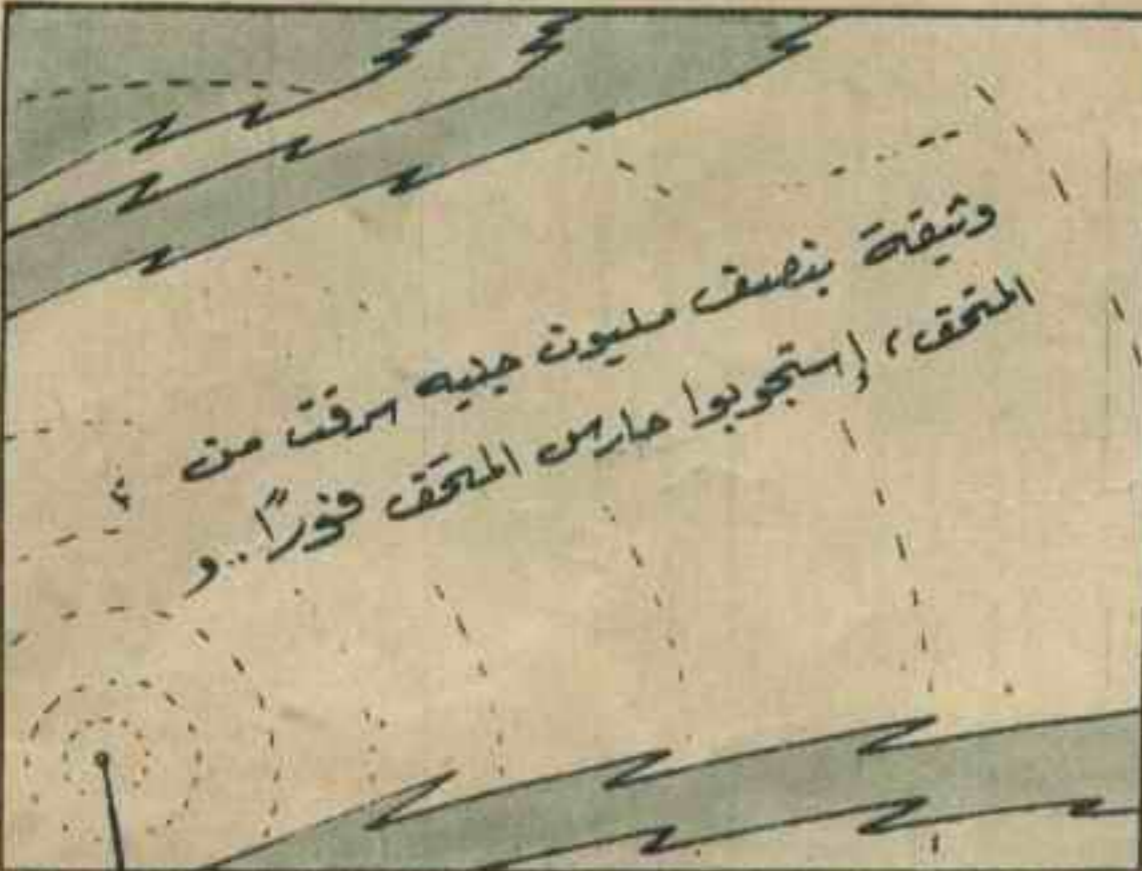 وثيقة بنصف مليون جنيه سرقت من
المتحف، إستجوبوا حارس المتحف فورًا..و